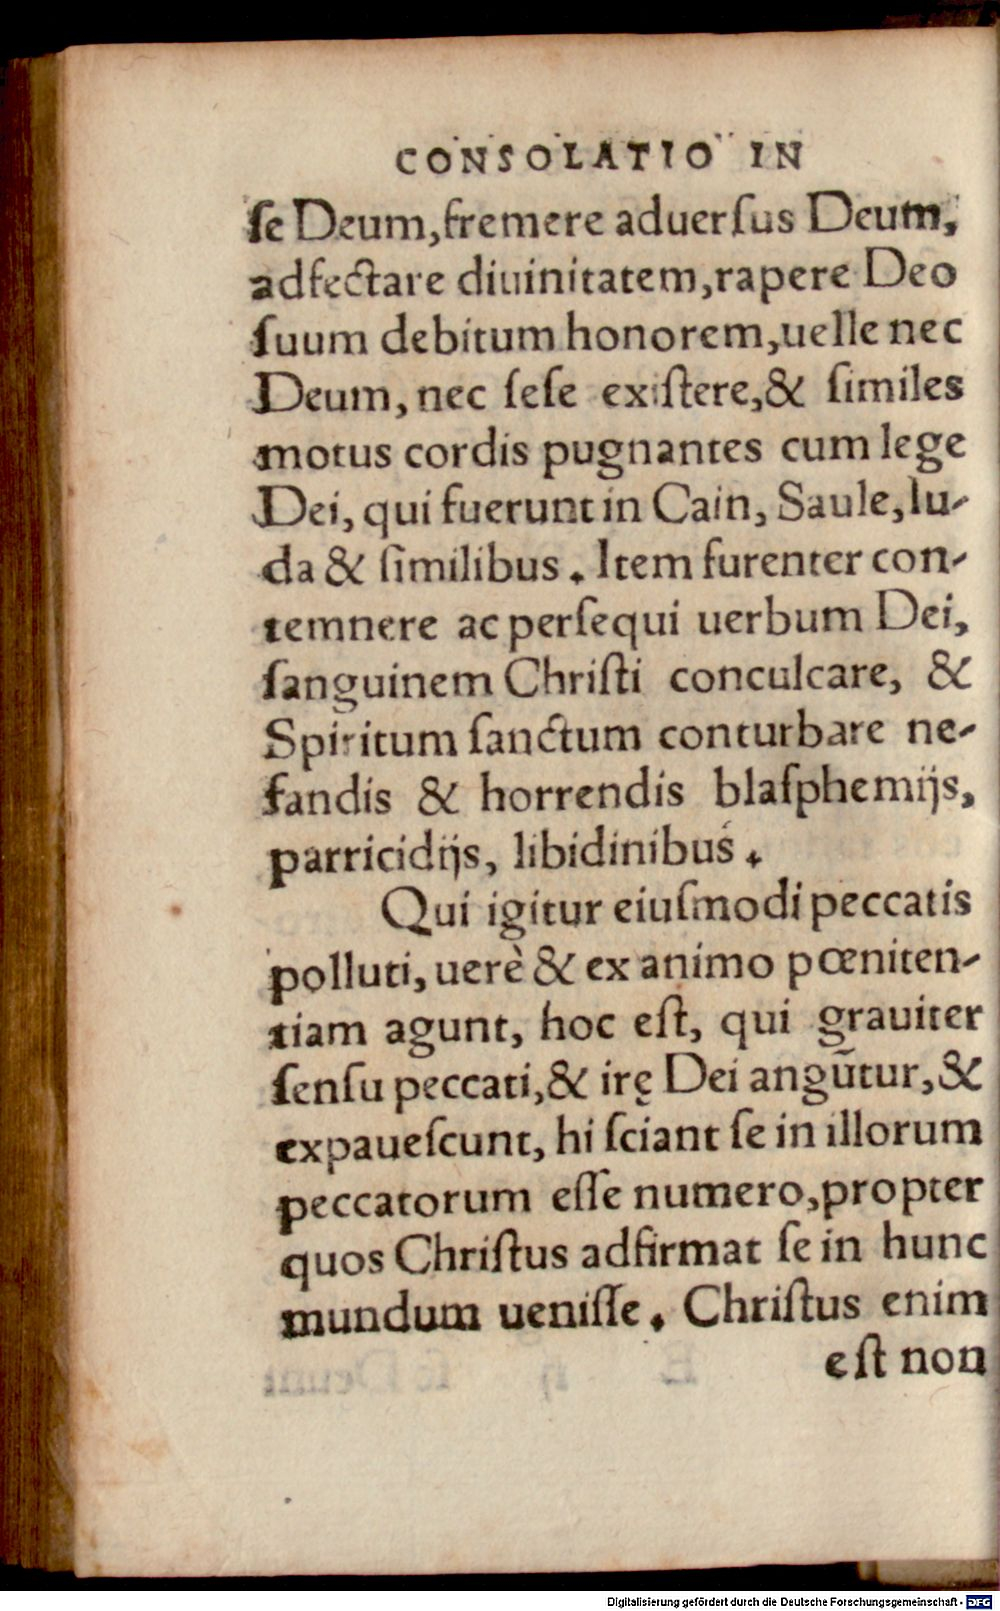 CONSOLATIO IN
ſe Deum, fremere aduerſus Deum,
adfectare diuinitatem, rapere Deo
ſuum debitum honorem, uelle nec
Deum, nec ſeſe exiſtere, & ſimiles
motus cordis pugnantes cum lege
Dei, qui fuerunt in Cain, Saule, Iu-
da & ſimilibus. Item furenter con-
temnere ac perſequi uerbum Dei,
ſanguinem Chriſti conculcare, &
Spiritum ſanctum conturbare ne-
fandis & horrendis blaſphemijs,
parricidijs, libidinibus.
Qui igitur eiuſmodi peccatis
polluti, uerè & ex animo pœniten-
tiam agunt, hoc eſt, qui grauiter
ſenſu peccati, & irę Dei angūtur, &
expaueſcunt, hi ſciant ſe in illorum
peccatorum eſſe numero, propter
quos Chriſtus adfirmat ſe in hunc
mundum ueniſſe. Chriſtus enim
eſt non
Digitalisierung gefördert durch die Deutsche Forschungsgemeinschaft - DFG